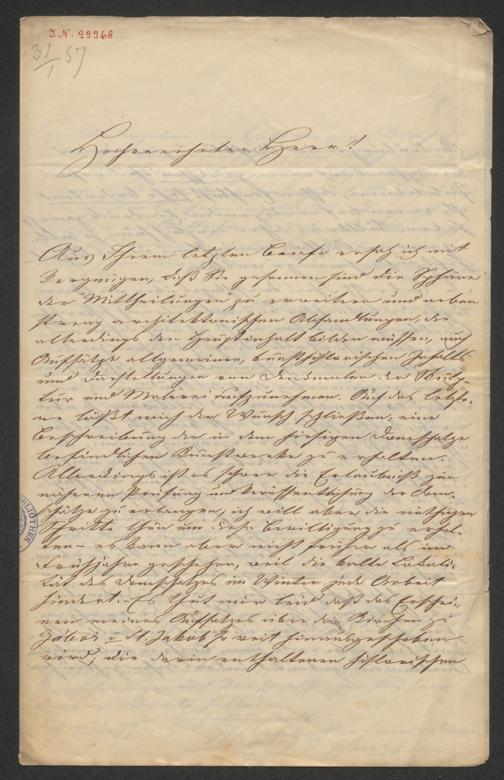 I.N. 99968
31/1 57
Hochverehrter Herr!
Aus Ihrem letzten Briefe ersah ich mit
Vergnügen, daß Sie gesonnen sind die Sphäre
der Mittheilungen zu erweitern und neben
streng architektonischen Abhandlungen, die
allerdings den Hauptinhalt bilden müssen, auch
Aufsätze allgemeinen, kunsthistorischen Inhalts
und Darstellungen von Denkmalen der Skulp-
tur und Malerei aufzunehmen. Auf das letzte-
re läßt mich der Wunsch schließen, eine
Beschreibung der in dem hiesigen Domschatze
befindlichen Kunstwerke zu erhalten.
Allerdings ist es schwer die Erlaubniß zur
näheren Prüfung und Veröffentlichung der Dom-
schätze zu erlangen, ich will aber die nöthigen
Schritte thun um diese Bewilligung zu erhal-
ten – es kann aber nicht früher als im
Frühjahre geschehen, weil die kalte Lokali-
tät des Domschatzes im Winter jede Arbeit
hindert. Es thut mir leid daß das Erschei-
nen meines Aufsatzes über die Kirchen zu
Záboř u St. Jakob so weit hinausgeschoben
wird; die darin enthaltenen historischen